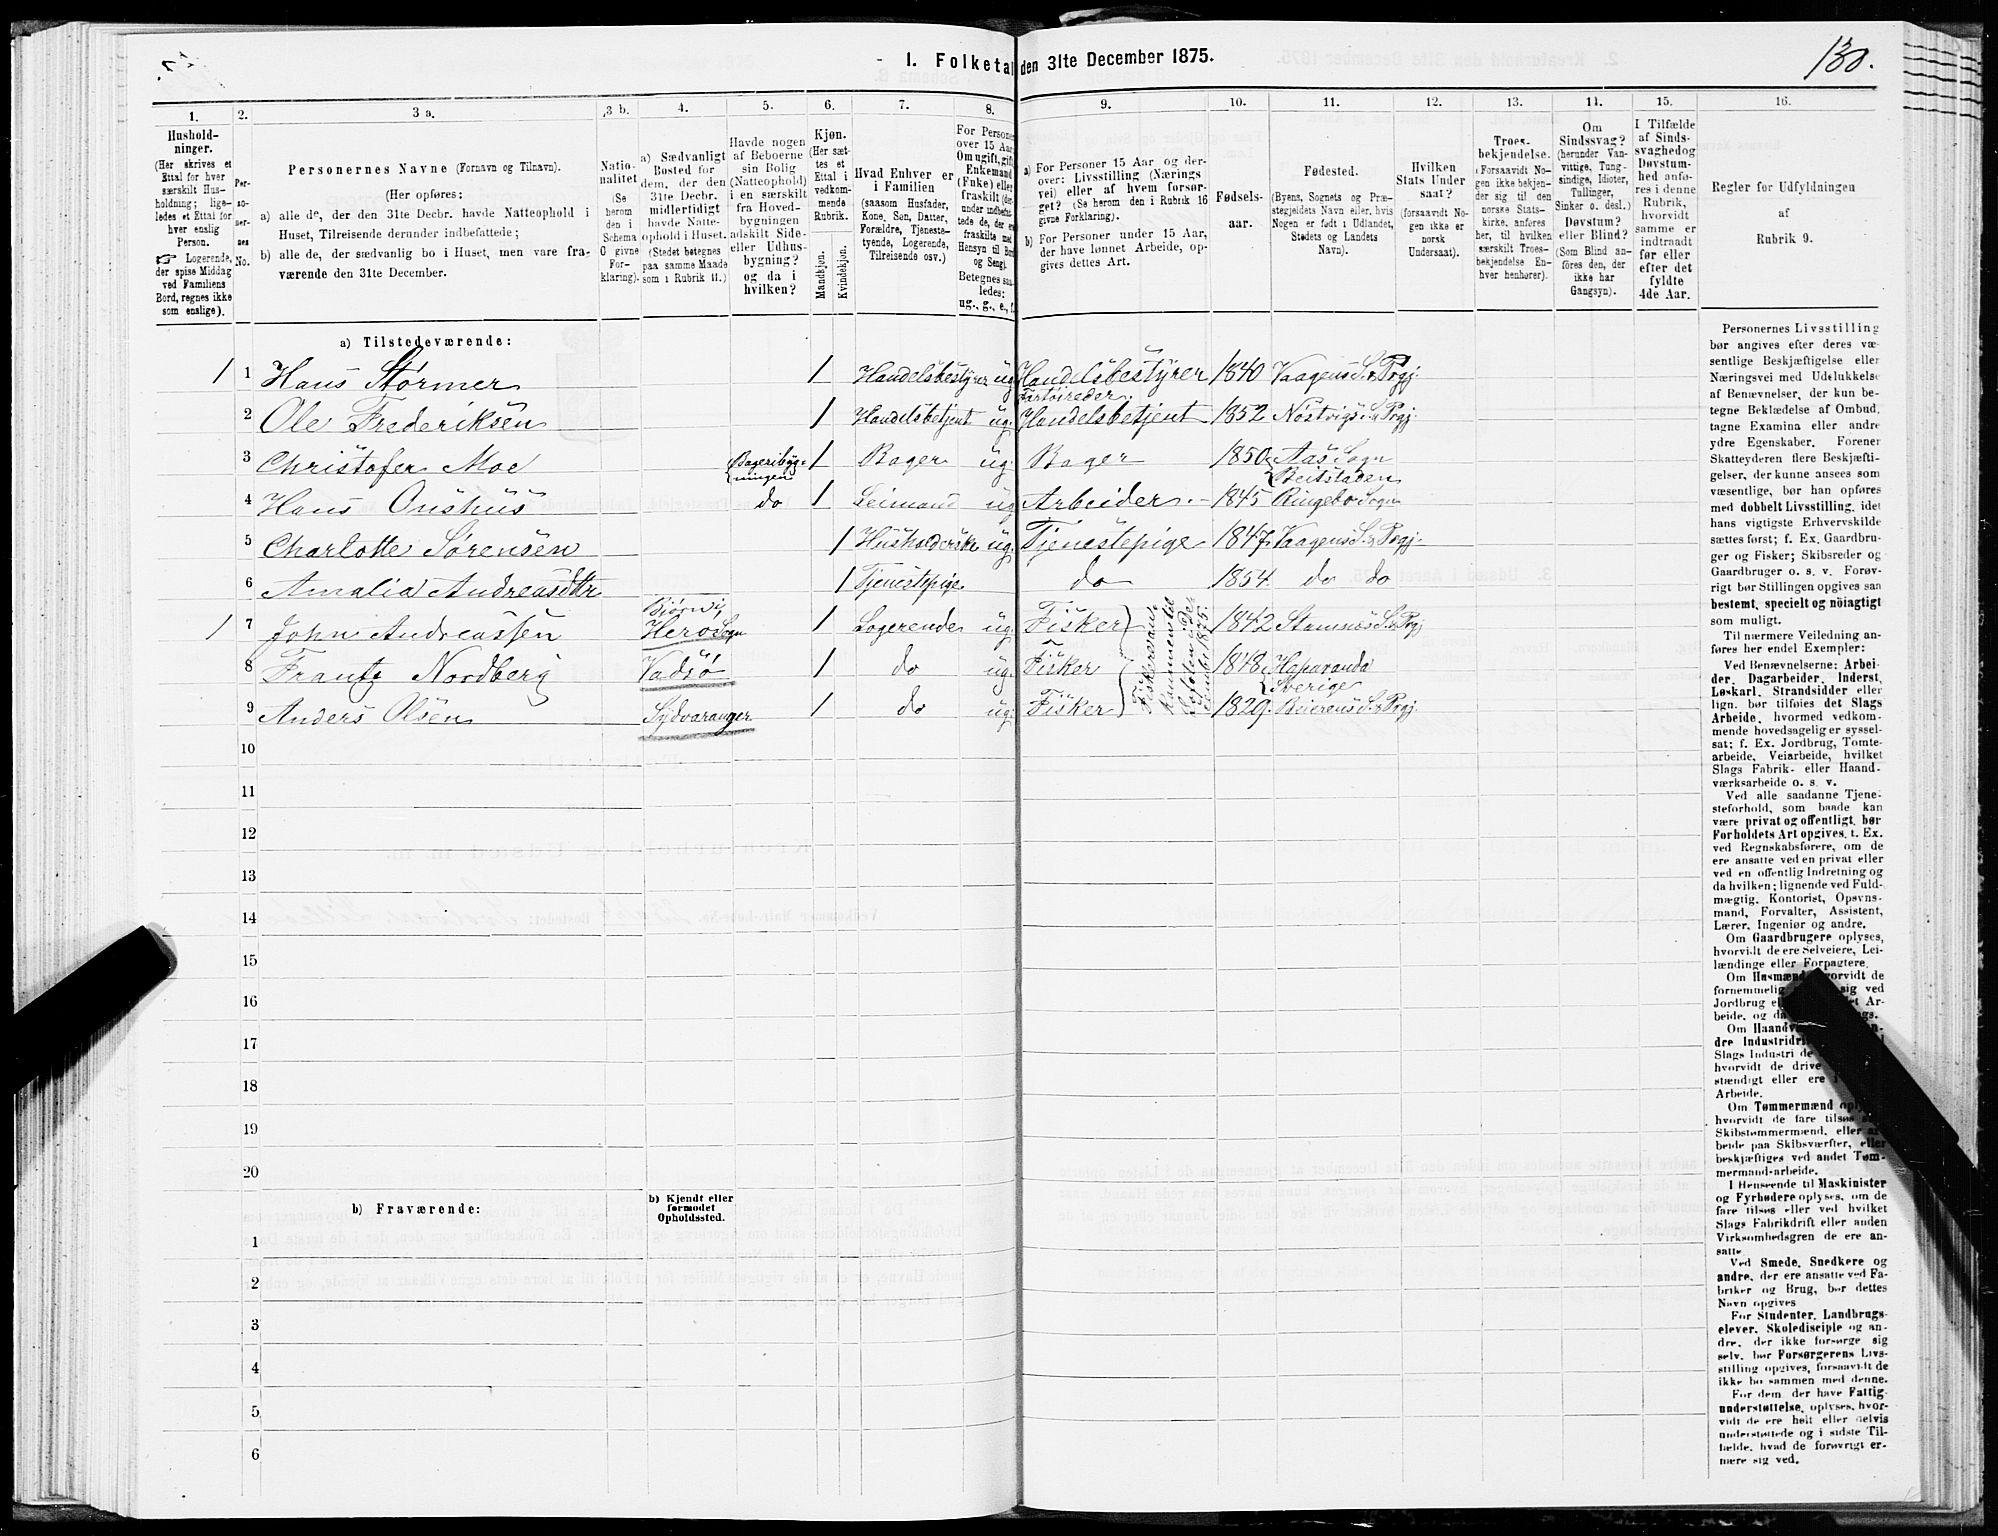 1. Folketal den 31te December 1875.
130.
1. 2. 3 a. 3 b. 4. 5. 6. 7. 8. 9. 10. 11. 12. 13. 14. 15. 16.
Hushold-
ninger.
(Her skrives et
Ettal for hver
særskilt Hus-
holdning; lige-
ledes et Ettal for
hver enslig
Person.
☞ Logerende,
der spise Middag
ved Familiens
Bord, regnes ikke
som enslige).
Per-
so-
ner-
nes
No.
Personernes Navne (Fornavn og Tilnavn).
(Her opføres:
a) alle de, der den 31te Decbr. havde Natteophold i
Huset, Tilreisende derunder indbefattede;
b) alle de, der sædvanlig bo i Huset, men vare fra-
værende den 31te December.
Natio-
nalitet
(Se
herom
den i
Schema
O givne
For-
klaring).
a) Sædvanligt
Bosted for
dem, der den
31te Decbr.
midlertidigt
havde Natte-
ophold i Huset.
(Stedet betegnes
paa samme Maade
som i Rubrik 11.)
Havde nogen
af Beboerne
sin Bolig
(Natteophold)
i en særskilt
fra Hoved-
bygningen
adskilt Side-
eller Udhus-
bygning?
og da i
hvilken?
Kjøn.
(Her sæt-
tes et
Ettal i
vedkom-
mende
Rubrik.
Mandkjøn.
Kvindekjøn.
Hvad Enhver er
i Familien
(saasom Husfader,
Kone, Søn, Datter,
Forældre, Tjeneste-
tyende, Logerende,
Tilreisende osv.)
For Personer
over 15 Aar:
Om ugift, gift,
Enkemand
(Enke) eller
fraskilt
Betegnes saa-
ledes:
ug., g., e., f.
a) For Personer 15 Aar og der-
over: Livsstilling (Nærings
vei) eller af hvem forsør-
get? (Se herom den i Rubrik 16
givne Forklaring).
b) For Personer under 15 Aar,
der have lønnet Arbeide, op-
gives dettes Art.
Fødsels-
aar.
Fødested.
(Byens, Sognets og Præ-
stegjeldets Navn eller, hvis
Nogen er født i Udlandet,
Stedets og Landets
Navn).
Hvilken
Stats Under
saat?
(forsaavidt No-
gen ikke er
norsk
Undersaat).
Troes-
bekjendelse.
(Forsaavidt No-
gen ikke bekjen-
der sig til den
norske Stats-
kirke, anføres
her, til hvilken
særskilt Troes-
bekjendelse En-
hver henhører).
Om
Sindssvag?
(herunder Van-
vittige, Tung-
sindige, Idioter,
Tullinger,
Sinker o. desl.)
Døvstum?
eller Blind?
(Som Blind an-
føres den, der
ikke har
Gangsyn).
I Tilfælde
af Sinds-
svaghed og
Døvstum-
hed anfø-
res i denne
Rubrik,
hvorvidt
samme er
indtraadt
før eller
efter det
fyldte
4de Aar.
Regler for Udfyldningen
af
Rubrik 9.
a) Tilstedeværende:
1 1 Hans Størmer 1 Handelsbestyrer ug Handelsbestyrer 1840 Vaagens S. & Prgj.
Fartøireder.
2 Ole Frederiksen 1 Handelsbetjent ug: Handelsbetjent 1852 Nøstvigs S. & Prgj
3 Christofer Moe Bageribyg-
ningen 1 Bager ug: Bager 1850 Aas Sogn
Beitstaden
4 Hans Onshus do 1 Leimand ug Arbeider. 1845 Ringebo Sogn
5 Charlotte Sørensen 1 Husholderske ug: Tjenestepige 1847 Vaagens S. & Prgj.
6 Amalia Andreasdtr 1 Tjenestepige do 1854 do do
1 7 John Andreassen Herø Sogn 1 Logerende ug: Fisker 1842 Stamnes S. & Prgj
8 Frantz Nordberg Vadsø 1 do ug: Fisker 1848 Haparanda
Sverige
9 Anders Olsen Sydvaranger 1 do ug: Fisker 1829. Beierens S. & Prgj.
10
11
12
13
14
15
16
17
18
19
20
b) Fraværende:
b) Kjendt eller
formodet
Opholdssted.
1
2
3
4
5
6
Personernes Livsstilling
bør angives efter deres væ-
sentlige Beskjæftigelse eller
Næringsvei med Udelukkelse
af Benævnelser, der kun be-
tegne Beklædelse af Ombud,
tagne Examina eller andre
ydre Egenskaber. Forener
Skatteyderen flere Beskjæfti-
gelser, der kunne ansees som
væsentlige, bør han opføres
med dobbelt Livsstilling, idet
hans vigtigste Erhvervskilde
sættes først; f. Ex. Gaardbru-
ger og Fisker; Skibsreder og
Gaardbruger o. s. v. Forøv-
rigt bør Stillingen opgives saa
bestemt, specielt og nøiagtigt
som muligt.
Til nærmere Veiledning an-
føres her endel Exempler:
Ved Benævnelserne: Arbei-
der, Dagarbeider, Inderst,
Løskarl, Strandsidder eller
lign. bør tilføies det Slags
Arbeide, hvormed vedkom-
mende hovedsagelig er syssel-
sat; f. Ex. Jordbrug, Tomte-
arbeide, Veiarbeide, hvilket
Slags Fabrik- eller Haand-
værksarbeide o. s. v.
Ved alle saadanne Tjene-
steforhold, som baade kan
være privat og offentligt, bør
Forholdets Art opgives, t. Ex.
ved Regnskabsførere, om de
ere ansatte ved en privat eller
ved en offentlig Indretning og
da hvilken; lignende ved Fuld-
mægtig, Kontorist, Opsyns-
mand, Forvalter, Assistent,
Lærer, Ingeniør og andre.
Om Gaardbrugere oplyses,
hvorvidt de ere Selveiere, Lei-
lændinge eller Forpagtere.
Om Husmænd hvorvidt de
fornemmelig sig ved
Jordbrug
Om Haand
dre Industri
Slags Industri de
hvorvidt de drive
stændigt eller ere
Arbeide.
Om Tømmermænd
hvorvidt de fare tilsøs
Skibstømmermænd, eller
beide paa Skibsværfter, eller
beskjæftiges ved andet Tøm-
mermand-arbeide.
I Henseende til Maskinister
og Fyrbødere oplyses, om de
fare tilsøs eller ved hvilket
Slags Fabrikdrift eller anden
Virksomhedsgren de ere an-
satte
Ved Smede, Snedkere og
andre, der ere ansatte ved Fa-
briker og Brug, bør dettes
Navn opgives
For Studenter, Landbrugs-
elever, Skoledisciple og an-
dre, der ikke forsørge sig
selv, bør Forsørgerens Livs-
stilling opgives, forsaavidt de
ikke bo sammen med denne.
For dem, der have Fattig-
understøttelse, oplyses, hvor-
vidt de ere helt eller delvis
understøttede og i sidste Til-
fælde, hvad de forøvrigt er-
nære sig ved.